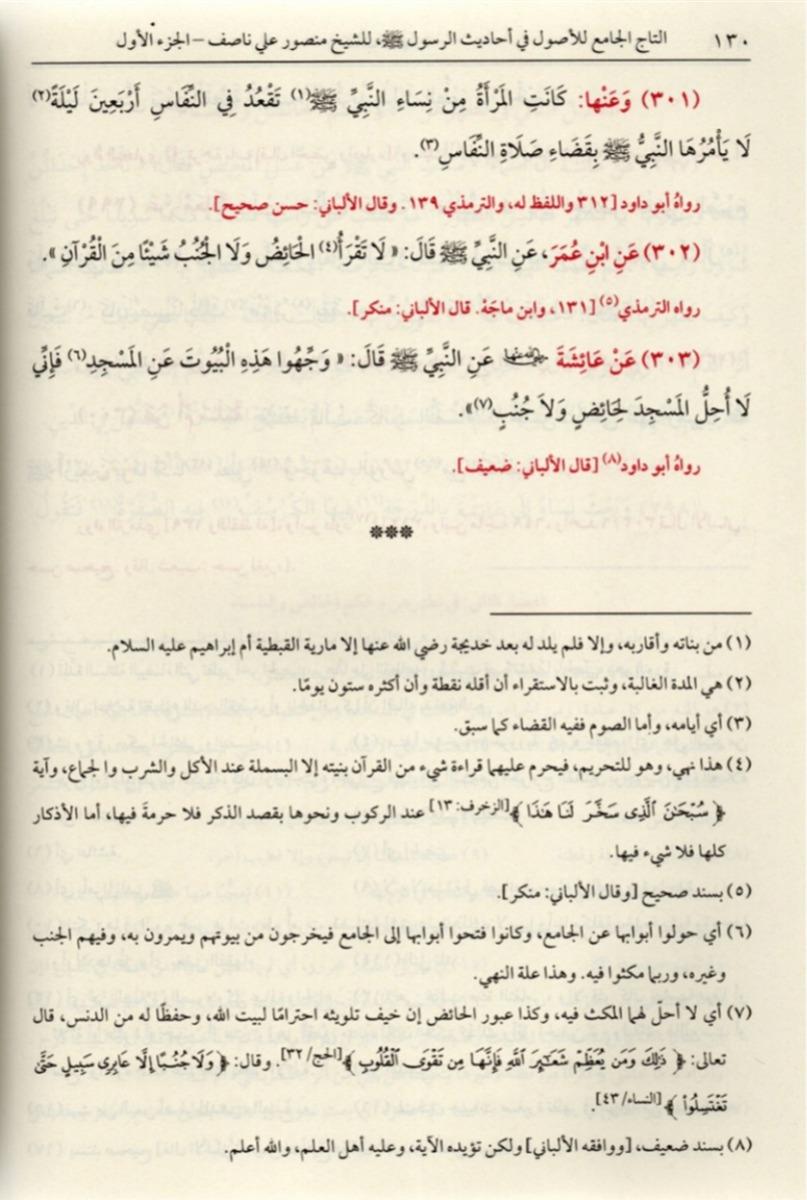 ١٣٠ التاج الجامع للأصول في أحاديث الرسول ﷺ، للشيخ منصور علي ناصف – الجزء الأول
(٣٠١) وَعَنْها: كَانَتِ المَرْأَةُ مِنْ نِسَاءِ النَّبِيِّ ﷺ(١) تَقْعُدُ فِي النِّفَاسِ أَرْبَعِينَ لَيْلَةً(٢)
لَا يَأْمُرُهَا النَّبِيُّ ﷺ بِقَضَاءِ صَلَاةِ النِّفَاسِ(٣).
رواهُ أبو داود [٣١٢ واللفظ له، والترمذي ١٣٩. وقال الألباني: حسن صحيح].
(٣٠٢) عَنِ ابْنِ عُمَرَ، عَنِ النَّبِيِّ ﷺ قَالَ: «لَا تَقْرَأُ(٤) الحَائِضُ وَلَا الجُنُبُ شَيْئًا مِنَ الْقُرْآنِ».
رواه الترمذي(٥) [١٣١، وابن ماجَهْ. قال الألباني: منكر].
(٣٠٣) عَنْ عَائِشَةَ رضي الله عنها عَنِ النَّبِيِّ ﷺ قَالَ: «وَجِّهُوا هَذِهِ الْبُيُوتَ عَنِ المَسْجِدِ(٦) فَإِنِّي
لَا أُحِلُّ المَسْجِدَ لِحَائِضٍ وَلاَ جُنُبٍ(٧)».
رواهُ أبو داود(٨) [قال الألباني: ضعيف].
***
(١) من بناته وأقاربه، وإلا فلم يلد له بعد خديجة رضي الله عنها إلا مارية القبطية أم إبراهيم عليه السلام.
(٢) هي المدة الغالبة، وثبت بالاستقراء أن أقله نقطة وأن أكثره ستون يومًا.
(٣) أي أيامه، وأما الصوم ففيه القضاء كما سبق.
(٤) هذا نهي، وهو للتحريم، فيحرم عليهما قراءة شيء من القرآن بنيته إلا البسملة عند الأكل والشرب والجماع، وآية
﴿سُبْحَٰنَ ٱلَّذِى سَخَّرَ لَنَا هَٰذَا﴾[الزخرف: ١٣] عند الركوب ونحوها بقصد الذكر فلا حرمةَ فيها، أما الأذكار
كلها فلا شيء فيها.
(٥) بسند صحيح [وقال الألباني: منكر].
(٦) أي حولوا أبوابها عن الجامع، وكانوا فتحوا أبوابها إلى الجامع فيخرجون من بيوتهم ويمرون به، وفيهم الجنب
وغيره، وربما مكثوا فيه. وهذا علة النهي.
(٧) أي لا أحلّ لهما المكث فيه، وكذا عبور الحائض إن خيف تلويثه احترامًا لبيت الله، وحفظًا له من الدنس، قال
تعالى: ﴿ذَٰلِكَ وَمَن يُعَظِّمْ شَعَٰٓئِرَ ٱللَّهِ فَإِنَّهَا مِن تَقْوَى ٱلْقُلُوبِ﴾[الحج/٣٢]. وقال: ﴿وَلَا جُنُبًا إِلَّا عَابِرِى سَبِيلٍ حَتَّىٰ
تَغْتَسِلُوا۟﴾[النساء/٤٣].
(٨) بسند ضعيف، [ووافقه الألباني] ولكن تؤيده الآية، وعليه أهل العلم، والله أعلم.